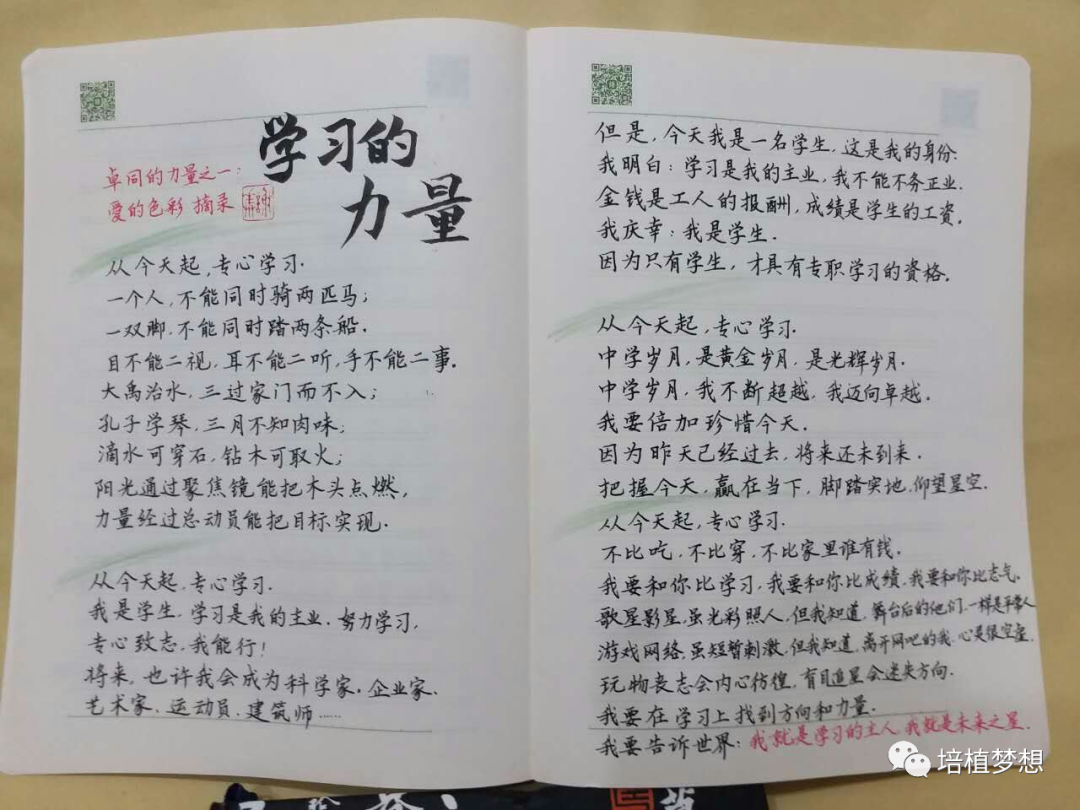 学习的
力量
卓同的力量之一：
爱的色彩 摘录
从今天起，专心学习.
一个人，不能同时骑两匹马；
一双脚，不能同时踏两条船.
目不能二视，耳不能二听，手不能二事.
大禹治水，三过家门而不入；
孔子学琴，三月不知肉味；
滴水可穿石，钻木可取火；
阳光通过聚焦镜能把木头点燃，
力量经过总动员能把目标实现.
从今天起，专心学习.
我是学生，学习是我的主业.努力学习，
专心致志，我能行！
将来，也许我会成为科学家、企业家、
艺术家、运动员、建筑师……
但是，今天我是一名学生，这是我的身份.
我明白：学习是我的主业，我不能不务正业.
金钱是工人的报酬，成绩是学生的工资.
我庆幸：我是学生.
因为只有学生，才具有专职学习的资格.
从今天起，专心学习.
中学岁月，是黄金岁月，是光辉岁月.
中学岁月，我不断超越，我迈向卓越.
我要倍加珍惜今天.
因为昨天已经过去，将来还未到来.
把握今天，赢在当下，脚踏实地，仰望星空.
从今天起，专心学习.
不比吃，不比穿，不比家里谁有钱.
我要和你比学习，我要和你比成绩，我要和你比志气.
歌星影星，虽光彩照人，但我知道，舞台后的他们，一样是平常人
游戏网络，虽短暂刺激，但我知道，离开网吧的我，心灵很空虚.
玩物丧志会内心彷徨，盲目追星会迷失方向.
我要在学习上找到方向和力量.
我要告诉世界：我就是学习的主人，我就是未来之星.
培植梦想